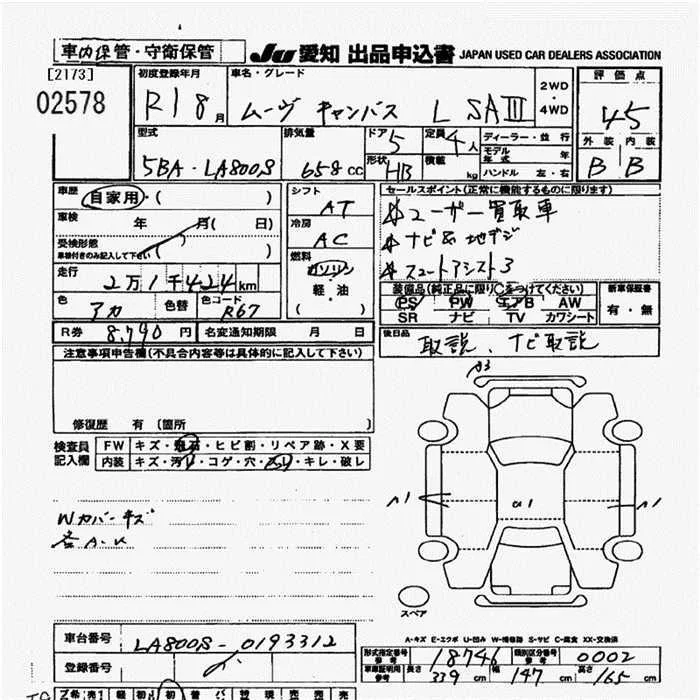 車内保管・守衛保管 Ju 愛知 出品申込書 JAPAN USED CAR DEALERS ASSOCIATION
[2173]
02578
初度登録年月 車名・グレード 2WD・4WD 評価点
R1 8月 ムーヴ キャンバス L SAⅢ 45
型式 排気量 ドア 5 定員 4人 ディーラー・並行 外装 内装
5BA-LA800S 658cc 形状 HB 積載 kg モデル年式 年 B B
ハンドル 左・右
車歴 自家用・( ) シフト AT セールスポイント(正常に機能するものに限ります)
車検 年 月( 日) 冷房 AC ユーザー買取車
受検形態 ( ) ナビ& 地デジ
車検付きのみ記入して下さい 燃料 ガソリン スマートアシスト3
走行 2万1千424km 軽・油 装備品(純正品に限り○をつけてください) 新車保証書
色 アカ 色替 色コード R67 ( ) PS PW エアB AW 有・無
SR ナビ TV カワシート
R券 8,790円 名変通知期限 月 日 後日品
取説、ナビ取説
注意事項申告欄(不具合内容等は具体的に記入して下さい)
修復歴 有 (箇所 )
検査員記入欄 FW キズ・飛石・ヒビ割・リペア跡・X要
内装 キズ・汚れ・コゲ・穴・スレ・キレ・破レ
A3
A1 A1
Wカバーキズ
スペア
A-キズ E-エクボ U-凹み W-補修跡 S-サビ C-腐食 XX-交換済
車台番号 LA800S-0193312
登録番号
形式指定番号 参考 18746 類別区分番号 参考 0002
車車証明用 参考 長さ 339cm 幅 147cm 高さ 165cm